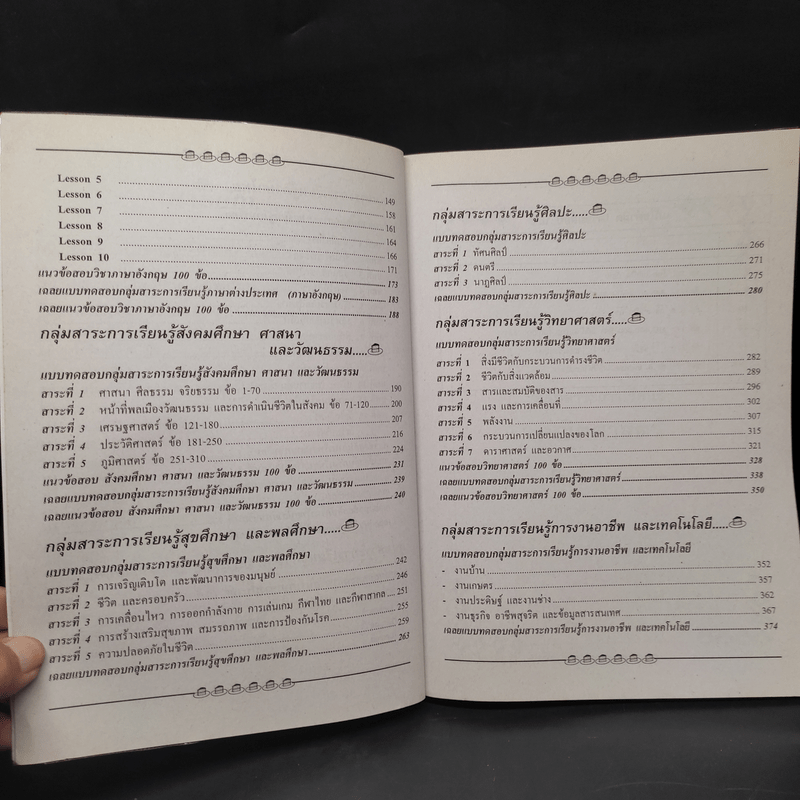 Lesson 5 ........ 149
Lesson 6 ........ 158
Lesson 7 ........ 161
Lesson 8 ........ 164
Lesson 9 ........ 166
Lesson 10 ........ 171
แนวข้อสอบวิชาภาษาอังกฤษ 100 ข้อ ........ 173
เฉลยแบบทดสอบกลุ่มสาระการเรียนรู้ภาษาต่างประเทศ (ภาษาอังกฤษ) ........ 183
เฉลยแนวข้อสอบวิชาภาษาอังกฤษ 100 ข้อ ........ 188
กลุ่มสาระการเรียนรู้สังคมศึกษา ศาสนา
และวัฒนธรรม.....
แบบทดสอบกลุ่มสาระการเรียนรู้สังคมศึกษา ศาสนา และวัฒนธรรม
สาระที่ 1 ศาสนา ศีลธรรม จริยธรรม ข้อ 1-70 ........ 190
สาระที่ 2 หน้าที่พลเมืองวัฒนธรรม และการดำเนินชีวิตในสังคม ข้อ 71-120 ........ 200
สาระที่ 3 เศรษฐศาสตร์ ข้อ 121-180 ........ 207
สาระที่ 4 ประวัติศาสตร์ ข้อ 181-250 ........ 216
สาระที่ 5 ภูมิศาสตร์ ข้อ 251-310 ........ 224
แนวข้อสอบ สังคมศึกษา ศาสนา และวัฒนธรรม 100 ข้อ ........ 231
เฉลยแบบทดสอบกลุ่มสาระการเรียนรู้สังคมศึกษา ศาสนา และวัฒนธรรม ........ 239
เฉลยแนวข้อสอบ สังคมศึกษา ศาสนา และวัฒนธรรม 100 ข้อ ........ 240
กลุ่มสาระการเรียนรู้สุขศึกษา และพลศึกษา.....
แบบทดสอบกลุ่มสาระการเรียนรู้สุขศึกษา และพลศึกษา
สาระที่ 1 การเจริญเติบโต และพัฒนาการของมนุษย์ ........ 242
สาระที่ 2 ชีวิต และครอบครัว ........ 246
สาระที่ 3 การเคลื่อนไหว การออกกำลังกาย การเล่นเกม กีฬาไทย และกีฬาสากล ........ 251
สาระที่ 4 การสร้างเสริมสุขภาพ สมรรถภาพ และการป้องกันโรค ........ 255
สาระที่ 5 ความปลอดภัยในชีวิต ........ 259
เฉลยแบบทดสอบกลุ่มสาระการเรียนรู้สุขศึกษา และพลศึกษา ........ 263
กลุ่มสาระการเรียนรู้ศิลปะ.....
แบบทดสอบกลุ่มสาระการเรียนรู้ศิลปะ
สาระที่ 1 ทัศนศิลป์ ........ 266
สาระที่ 2 ดนตรี ........ 271
สาระที่ 3 นาฏศิลป์ ........ 275
เฉลยแบบทดสอบกลุ่มสาระการเรียนรู้ศิลปะ ........ 280
กลุ่มสาระการเรียนรู้วิทยาศาสตร์.....
แบบทดสอบกลุ่มสาระการเรียนรู้วิทยาศาสตร์
สาระที่ 1 สิ่งมีชีวิตกับกระบวนการดำรงชีวิต ........ 282
สาระที่ 2 ชีวิตกับสิ่งแวดล้อม ........ 289
สาระที่ 3 สารและสมบัติของสาร ........ 296
สาระที่ 4 แรง และการเคลื่อนที่ ........ 302
สาระที่ 5 พลังงาน ........ 307
สาระที่ 6 กระบวนการเปลี่ยนแปลงของโลก ........ 315
สาระที่ 7 ดาราศาสตร์ และอวกาศ ........ 321
แนวข้อสอบวิทยาศาสตร์ 100 ข้อ ........ 328
เฉลยแบบทดสอบกลุ่มสาระการเรียนรู้วิทยาศาสตร์ ........ 338
เฉลยแนวข้อสอบวิทยาศาสตร์ 100 ข้อ ........ 350
กลุ่มสาระการเรียนรู้การงานอาชีพ และเทคโนโลยี.....
แบบทดสอบกลุ่มสาระการเรียนรู้การงานอาชีพ และเทคโนโลยี
- งานบ้าน ........ 352
- งานเกษตร ........ 357
- งานประดิษฐ์ และงานช่าง ........ 362
- งานธุรกิจ อาชีพสุจริต และข้อมูลสารสนเทศ ........ 367
เฉลยแบบทดสอบกลุ่มสาระการเรียนรู้การงานอาชีพ และเทคโนโลยี ........ 374